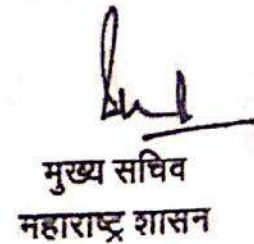 मुख्य सचिव
महाराष्ट्र शासन